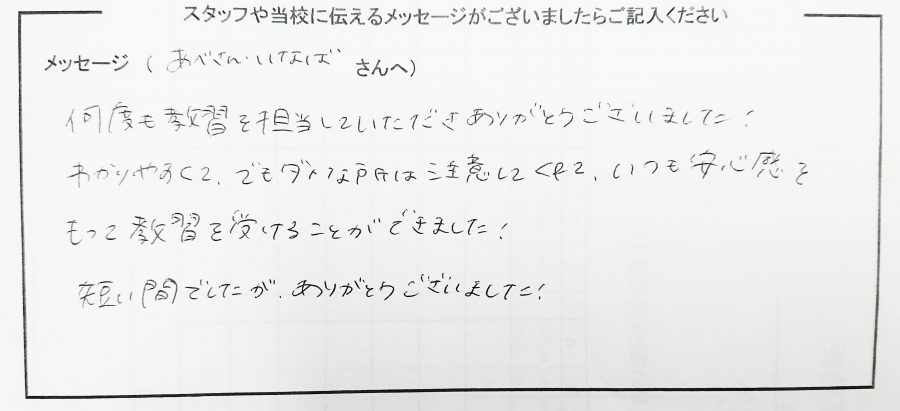 スタッフや当校に伝えるメッセージがございましたらご記入ください
メッセージ ( あべさん・いなば さんへ)
何度も教習を担当していただきありがとうございました!
わかりやすくて、でもダメな所は注意してくれて、いつも安心感を
もって教習を受けることができました!
短い間でしたが、ありがとうございました!